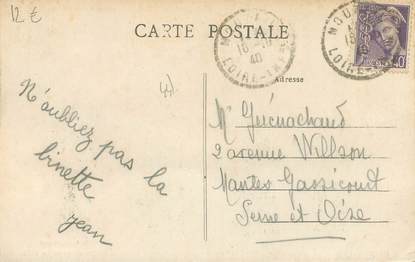 12 €
CARTE POSTALE
16-10
40
LOIRE-INF
Adresse
N'oubliez pas la
binette
Jean
Mr
2 avenue Willson
Mantes Gassicourt
Seine et Oise